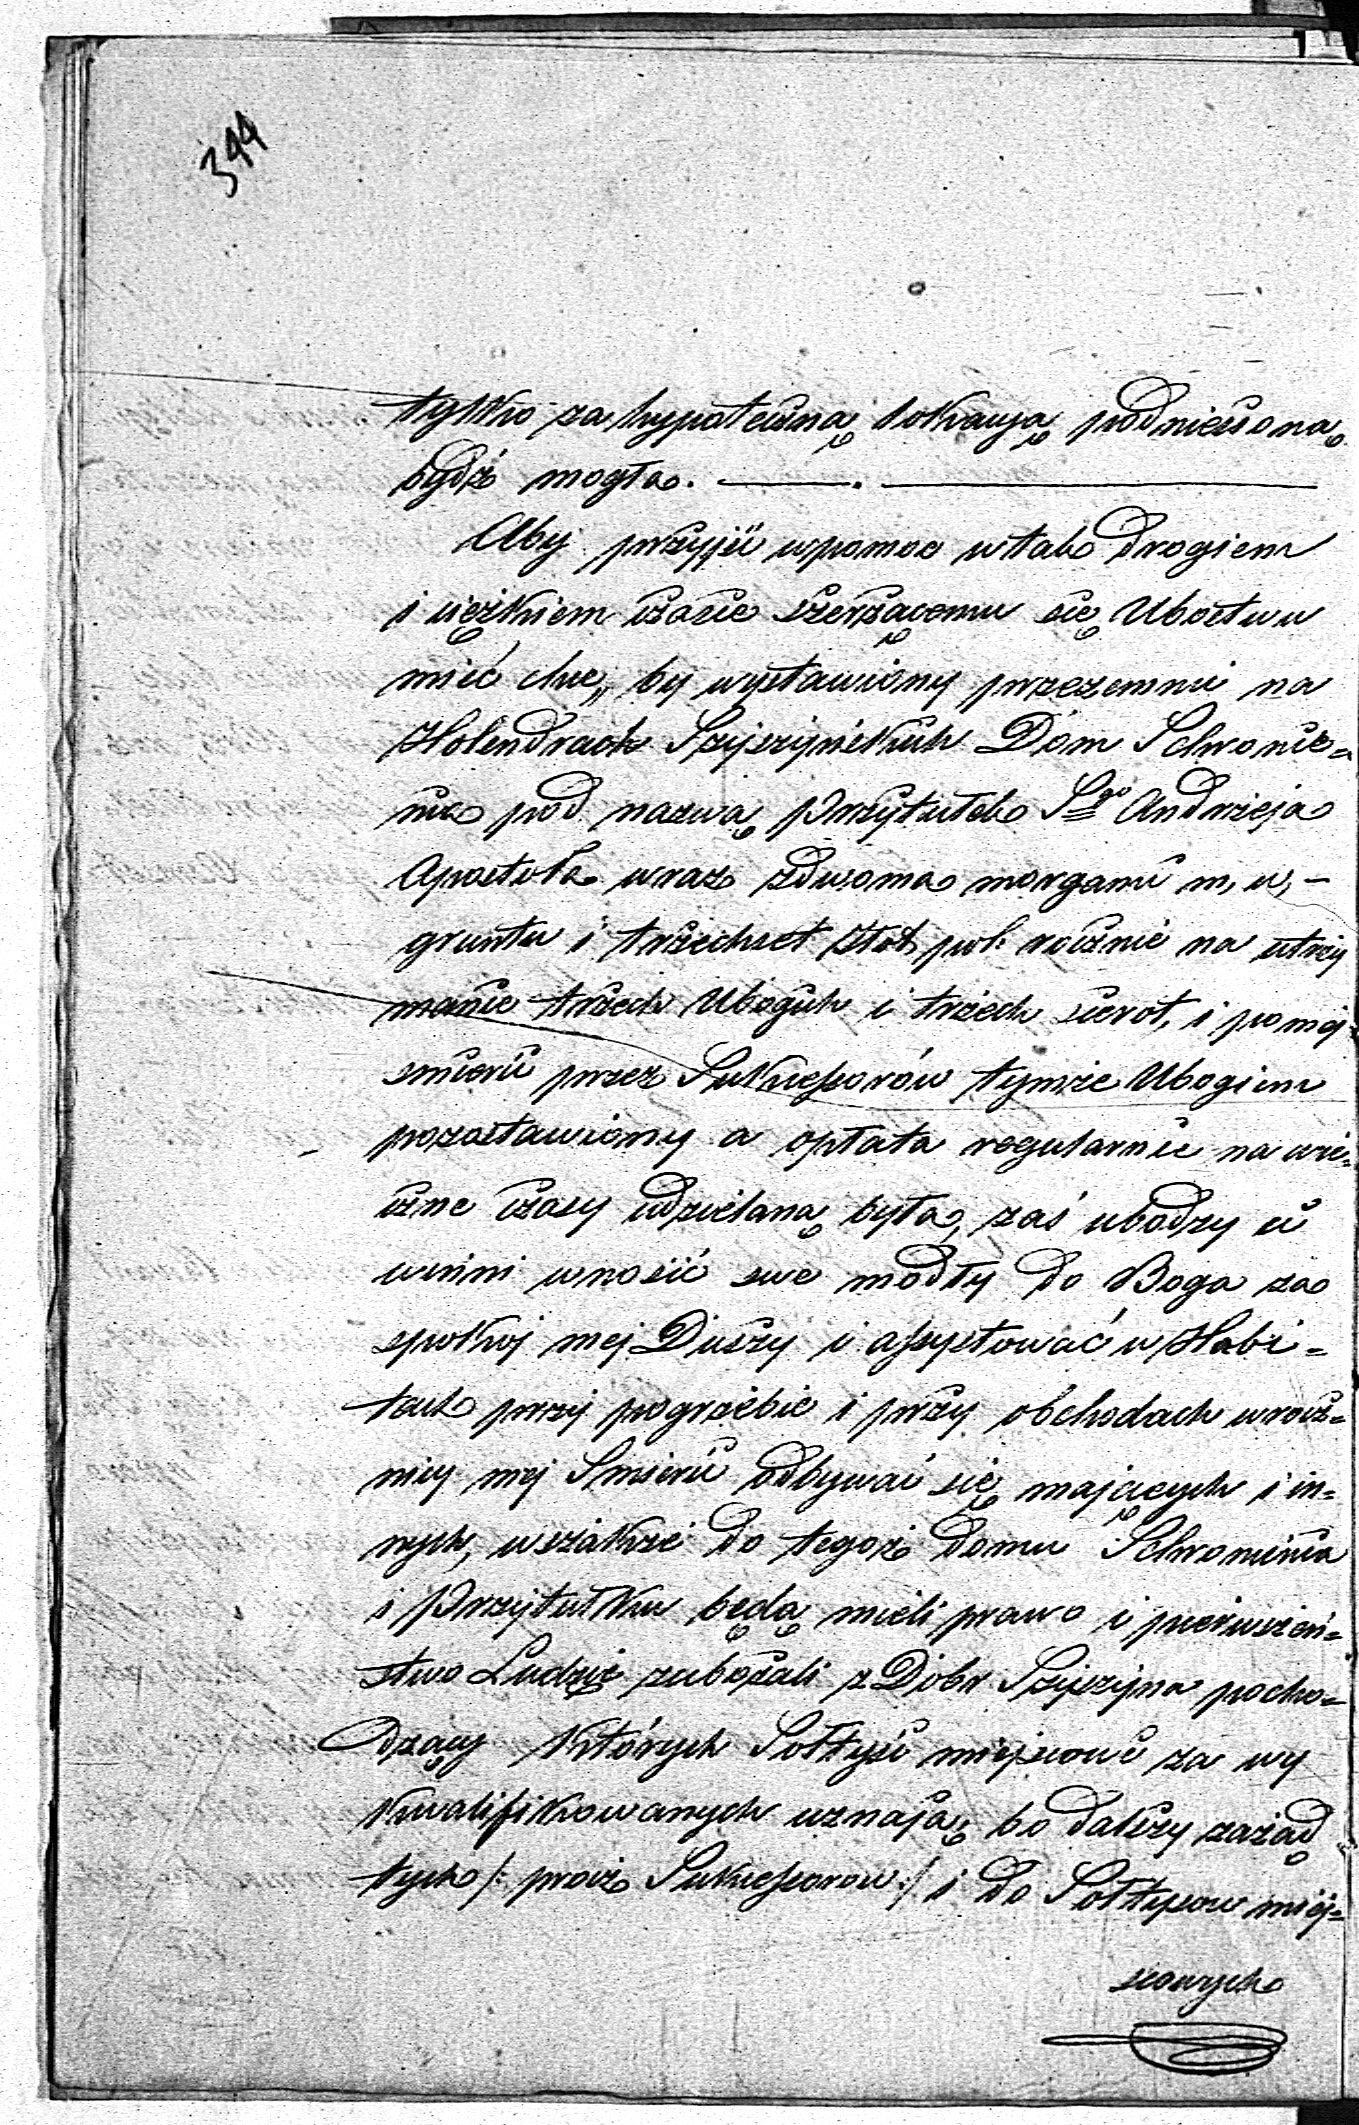 344
tylko za hypoteczną lokacyą podniesioną
bydź mogła. ——— . ———————
Aby przyjść w pomoc w tak drogiem
i ciężkiem czasie szerzącemu się Ubóstwu
mieć chcę, by wystawiony przezemnie na
Holendrach Szyszyńskich Dom Schronie=
nia pod nazwą Przytułek Sgo Andrzeja
Apostoła wraz z dwoma morgami m, n, –
gruntu i trzechset złot, pol: rocznie na utrzy
manie trzech Ubogich i trzech sierot, i po mej
śmierci przez Sukcessorów tymże Ubogiem
pozostawiony a opłata regularnie na wie=
czne czasy udzielaną była, zaś ubodzy ci
winni wnosić swe modły do Boga za
spokój mej Duszy i assystować w Habi=
tach przy pogrzebie i przy obchodach w rocz=
nicy mej Śmierci odbywać się mających i in=
nych, wszakże do tegoż domu Schronienia
i Przytułku będą mieli prawo i pierwszeń=
stwo Ludzie zubożali z Dóbr Szyszyna pocho=
dzący których Sołtysi miejscowi za wy
kwalifikowanych uznają, bo dalszy zarząd
tych /: prócz Sukcessorów :/ i do Sołtysów miej=
scowych